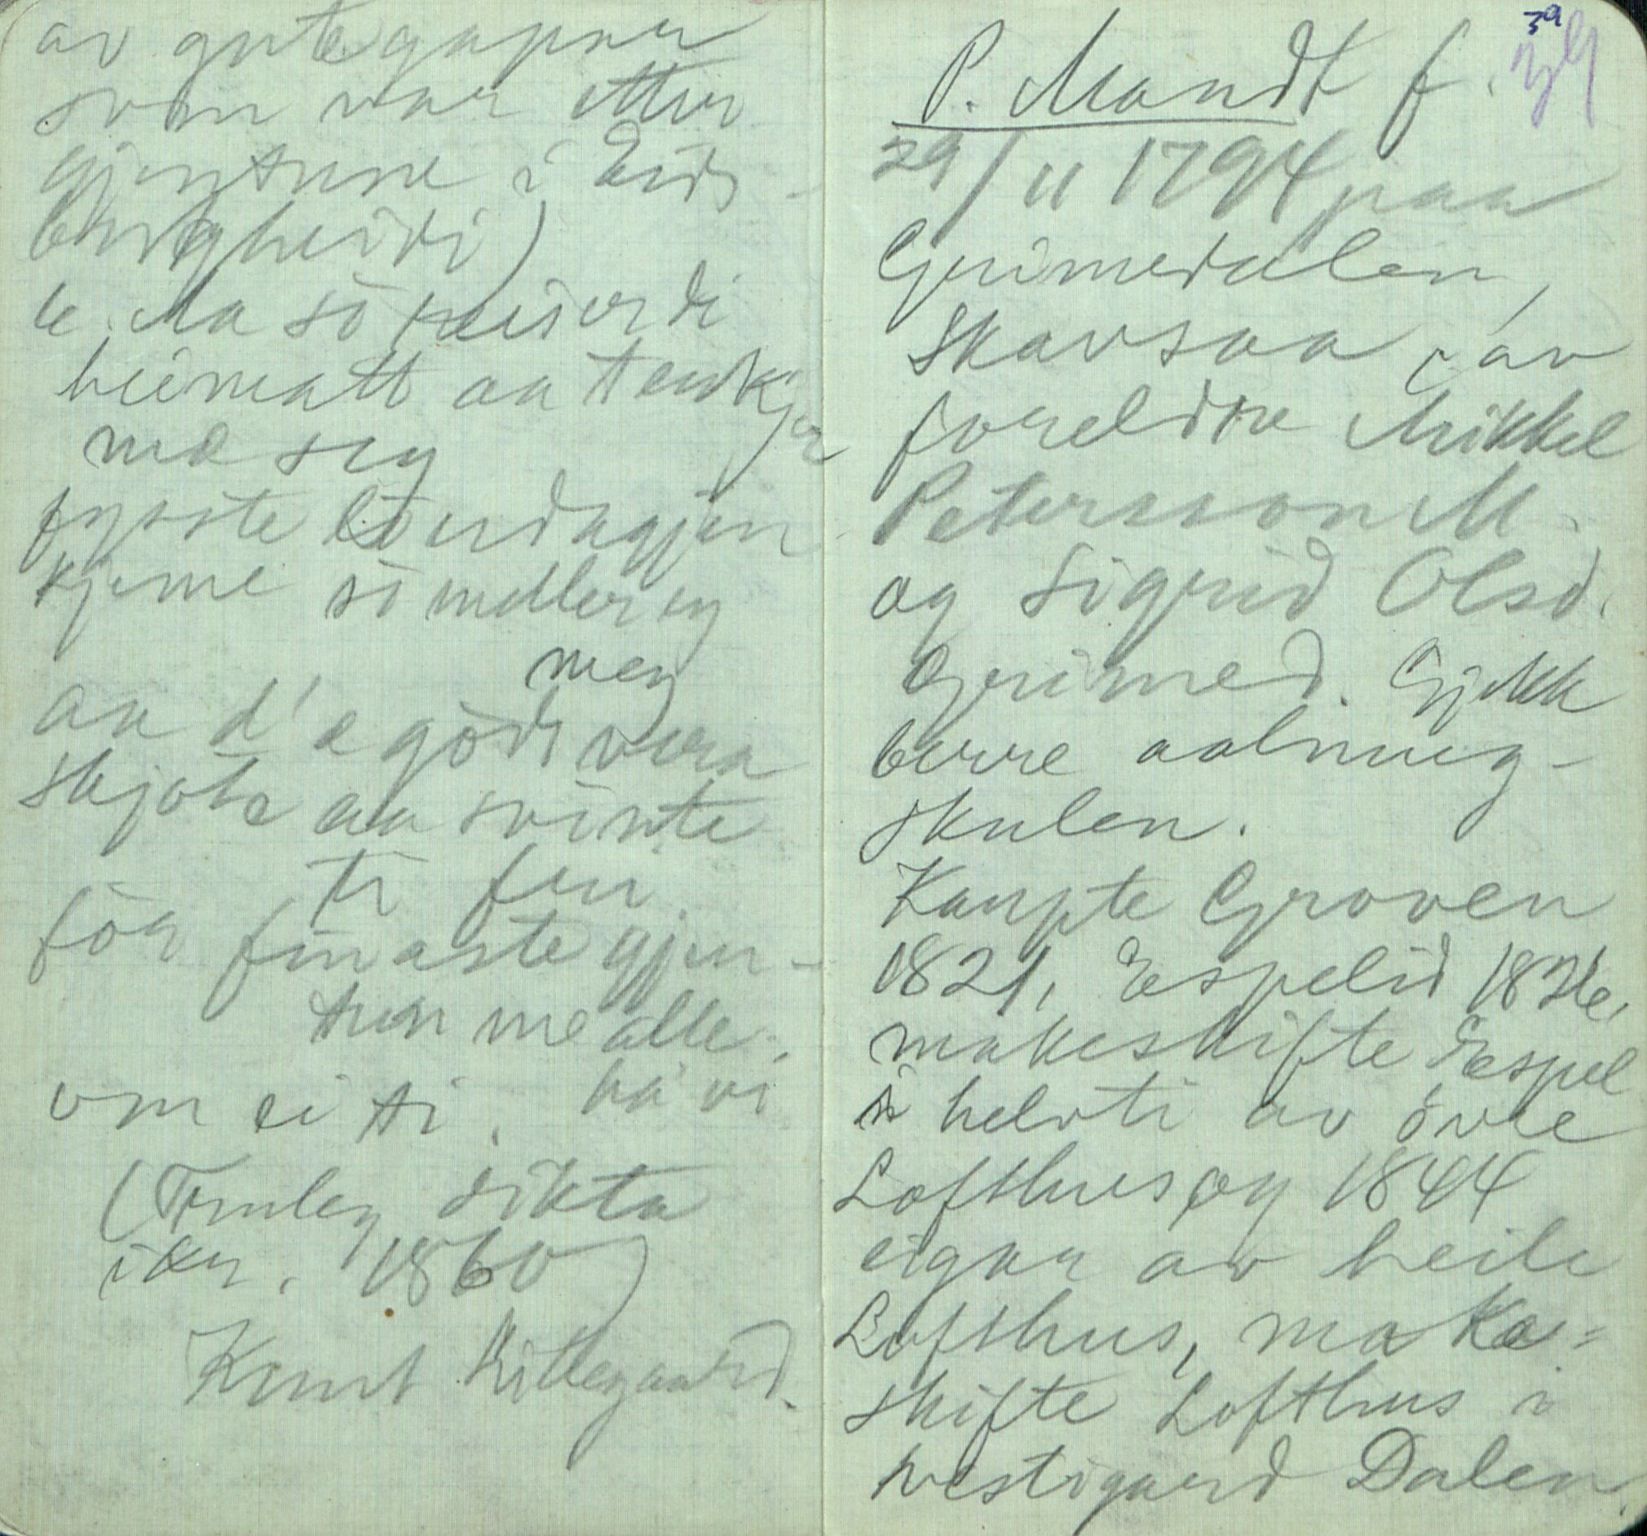 av gutegapar
som var etter
gjentune i Eids-
borgheidi)
6. Na so reiser di
heimatt aa tenkjer
me seg
fyrste laurdagjen
kjeme so meller eg
meg
aa d'æ godt vera
skjote aa svinte
ti furi
föa finaste gjen-
tun me alle.
ha vi
om ei ti.
(Truleg dikta
ikr. 1860)
Knut Killegaard.
39
39
P. Mandt f.
29/11 1794 paa
Grimedalen,
Skavsaa, av
foreldre Mikkel
Petersson M.
og Sigrid Olsd.
Grimed. Gjekk
berre aalmug-
skulen.
Kaupte Groven
1821, Espelid 1826,
makeskifte Espel
i helvti av övre
Lofthus og 1844
eigar av heile
Lofthus, make-
skifte Lofthus i
Vestigard Dalen.